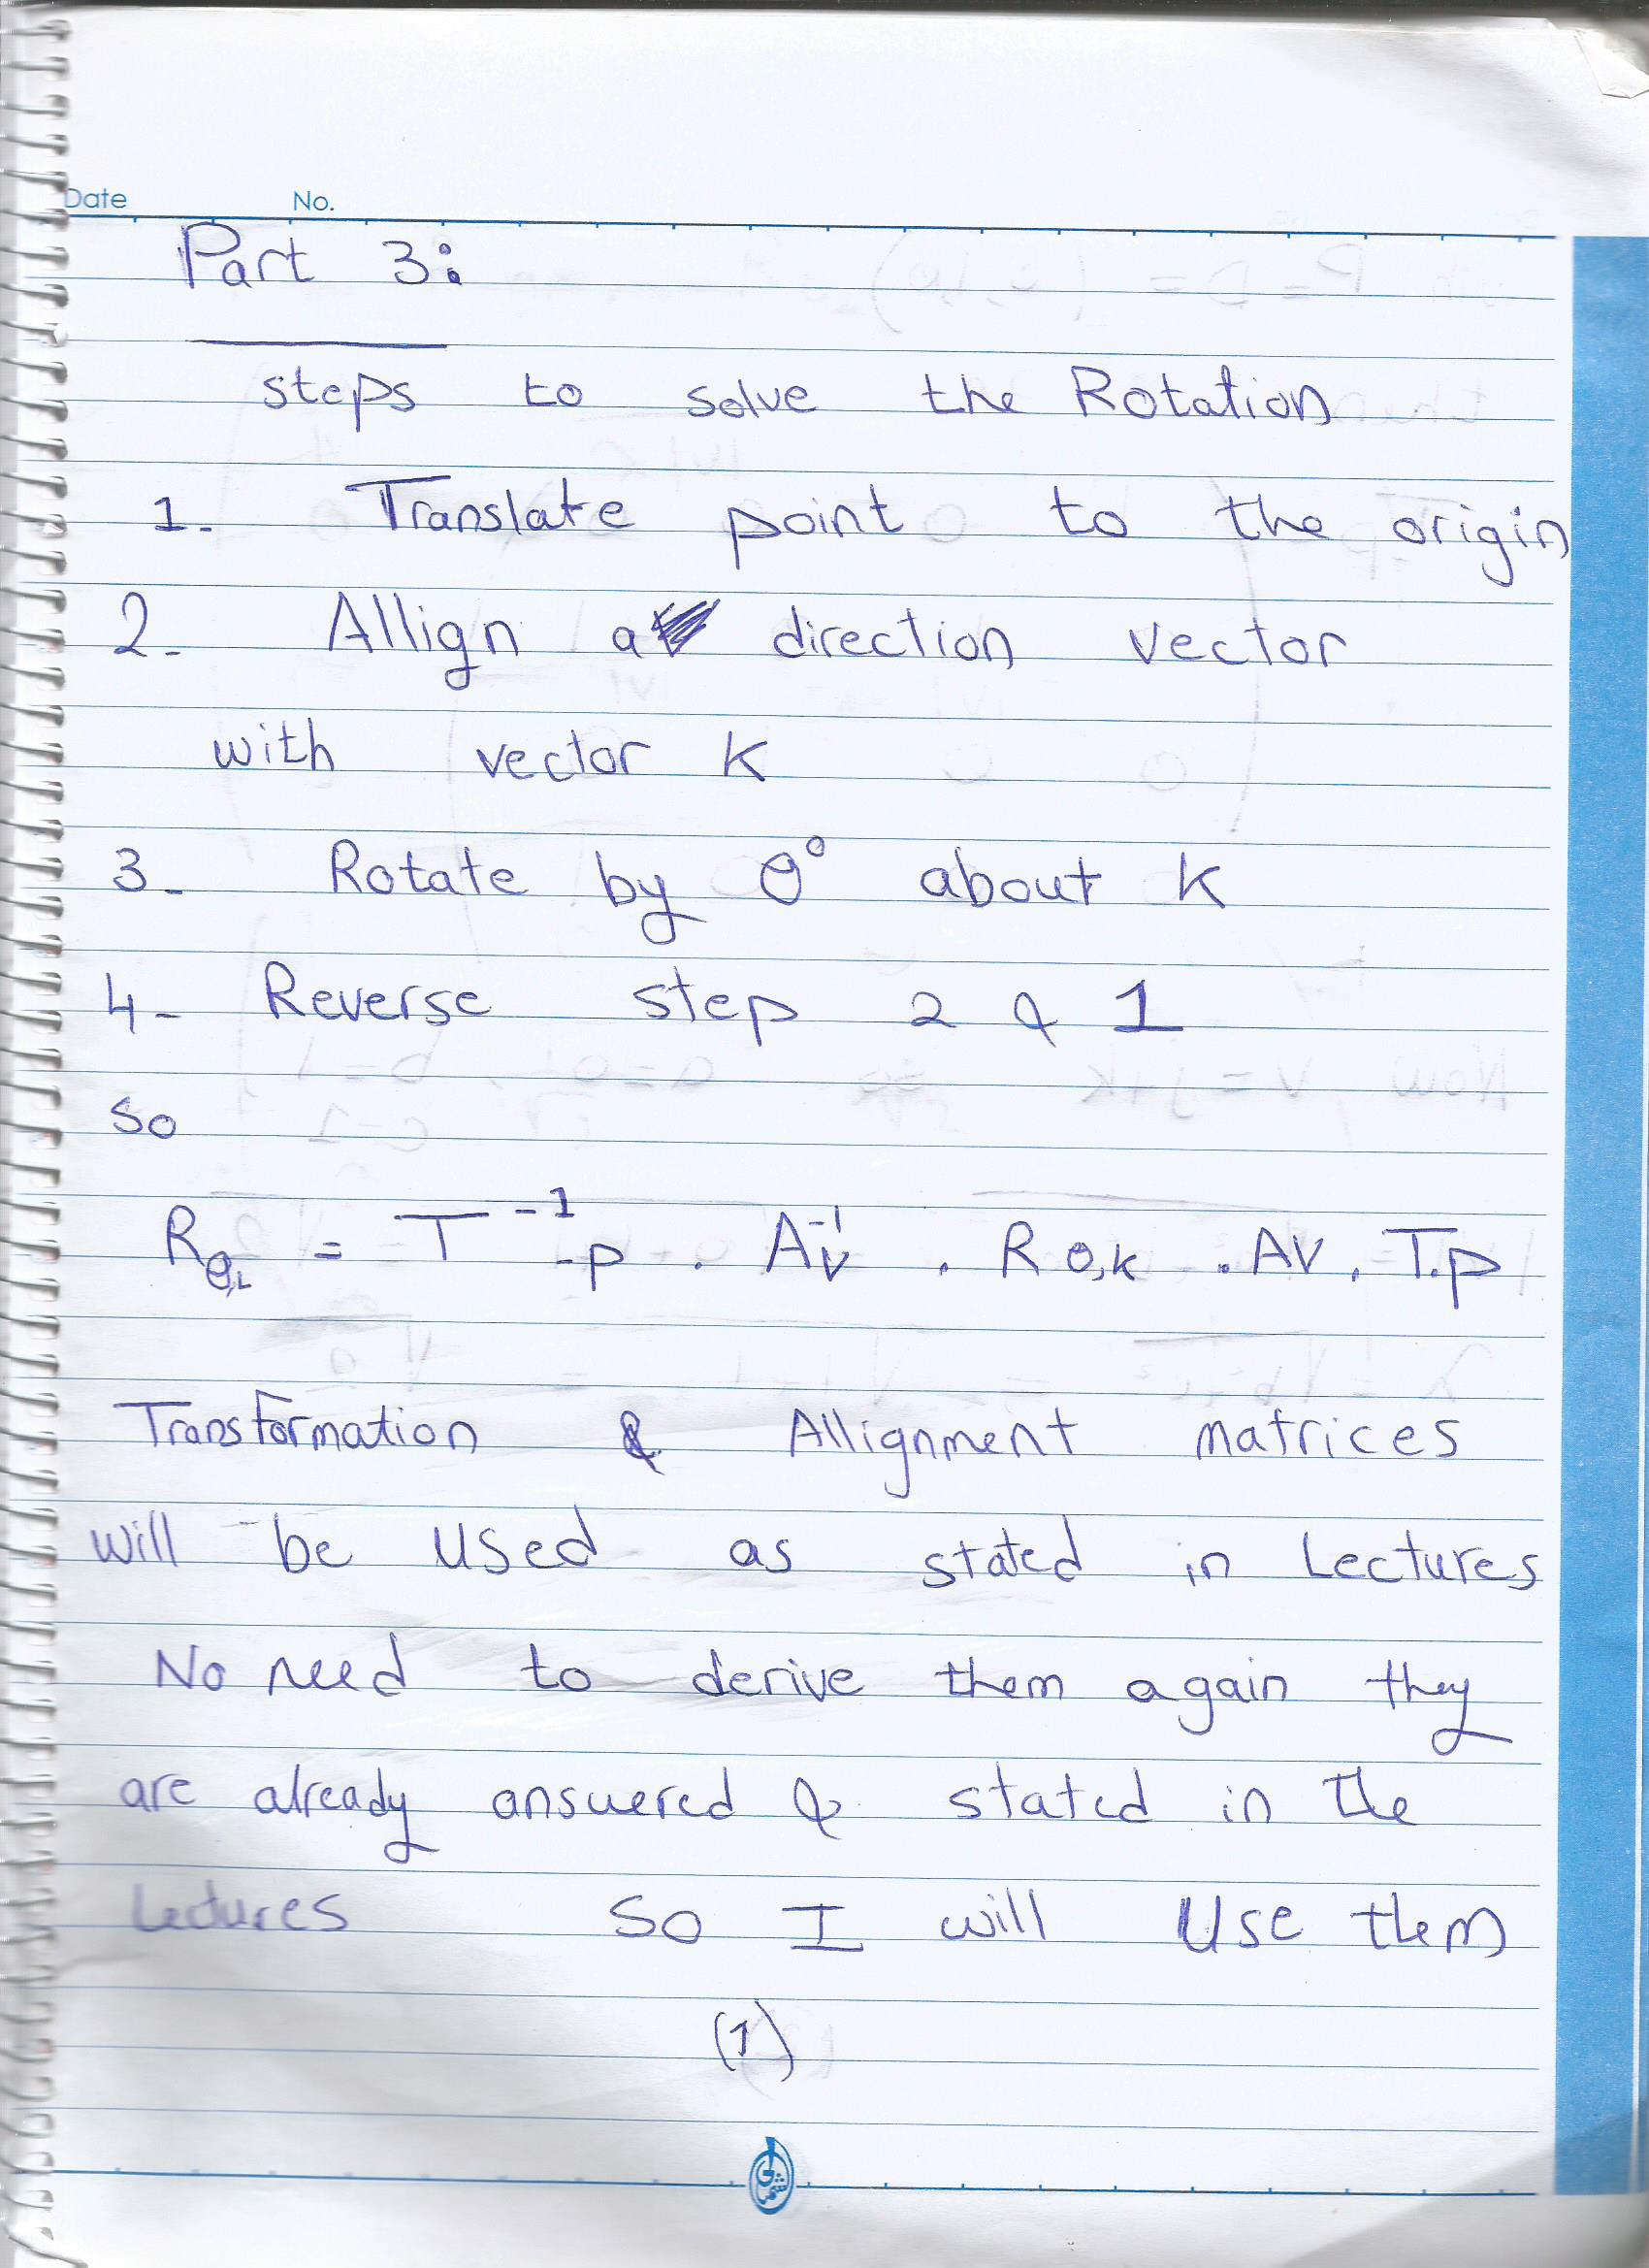 Date No.
Part 3:
steps to solve the Rotation
1- Translate point to the origin
2- Allign a direction vector
with vector K
3- Rotate by θ° about K
4- Reverse step 2 & 1
so
Rθ,L = T⁻¹-p . A⁻¹v . R θ,k . AV . T-p
Transformation & Allignment matrices
will be used as stated in Lectures
No need to derive them again they
are already answered & stated in the
Lectures so I will Use them
(1)